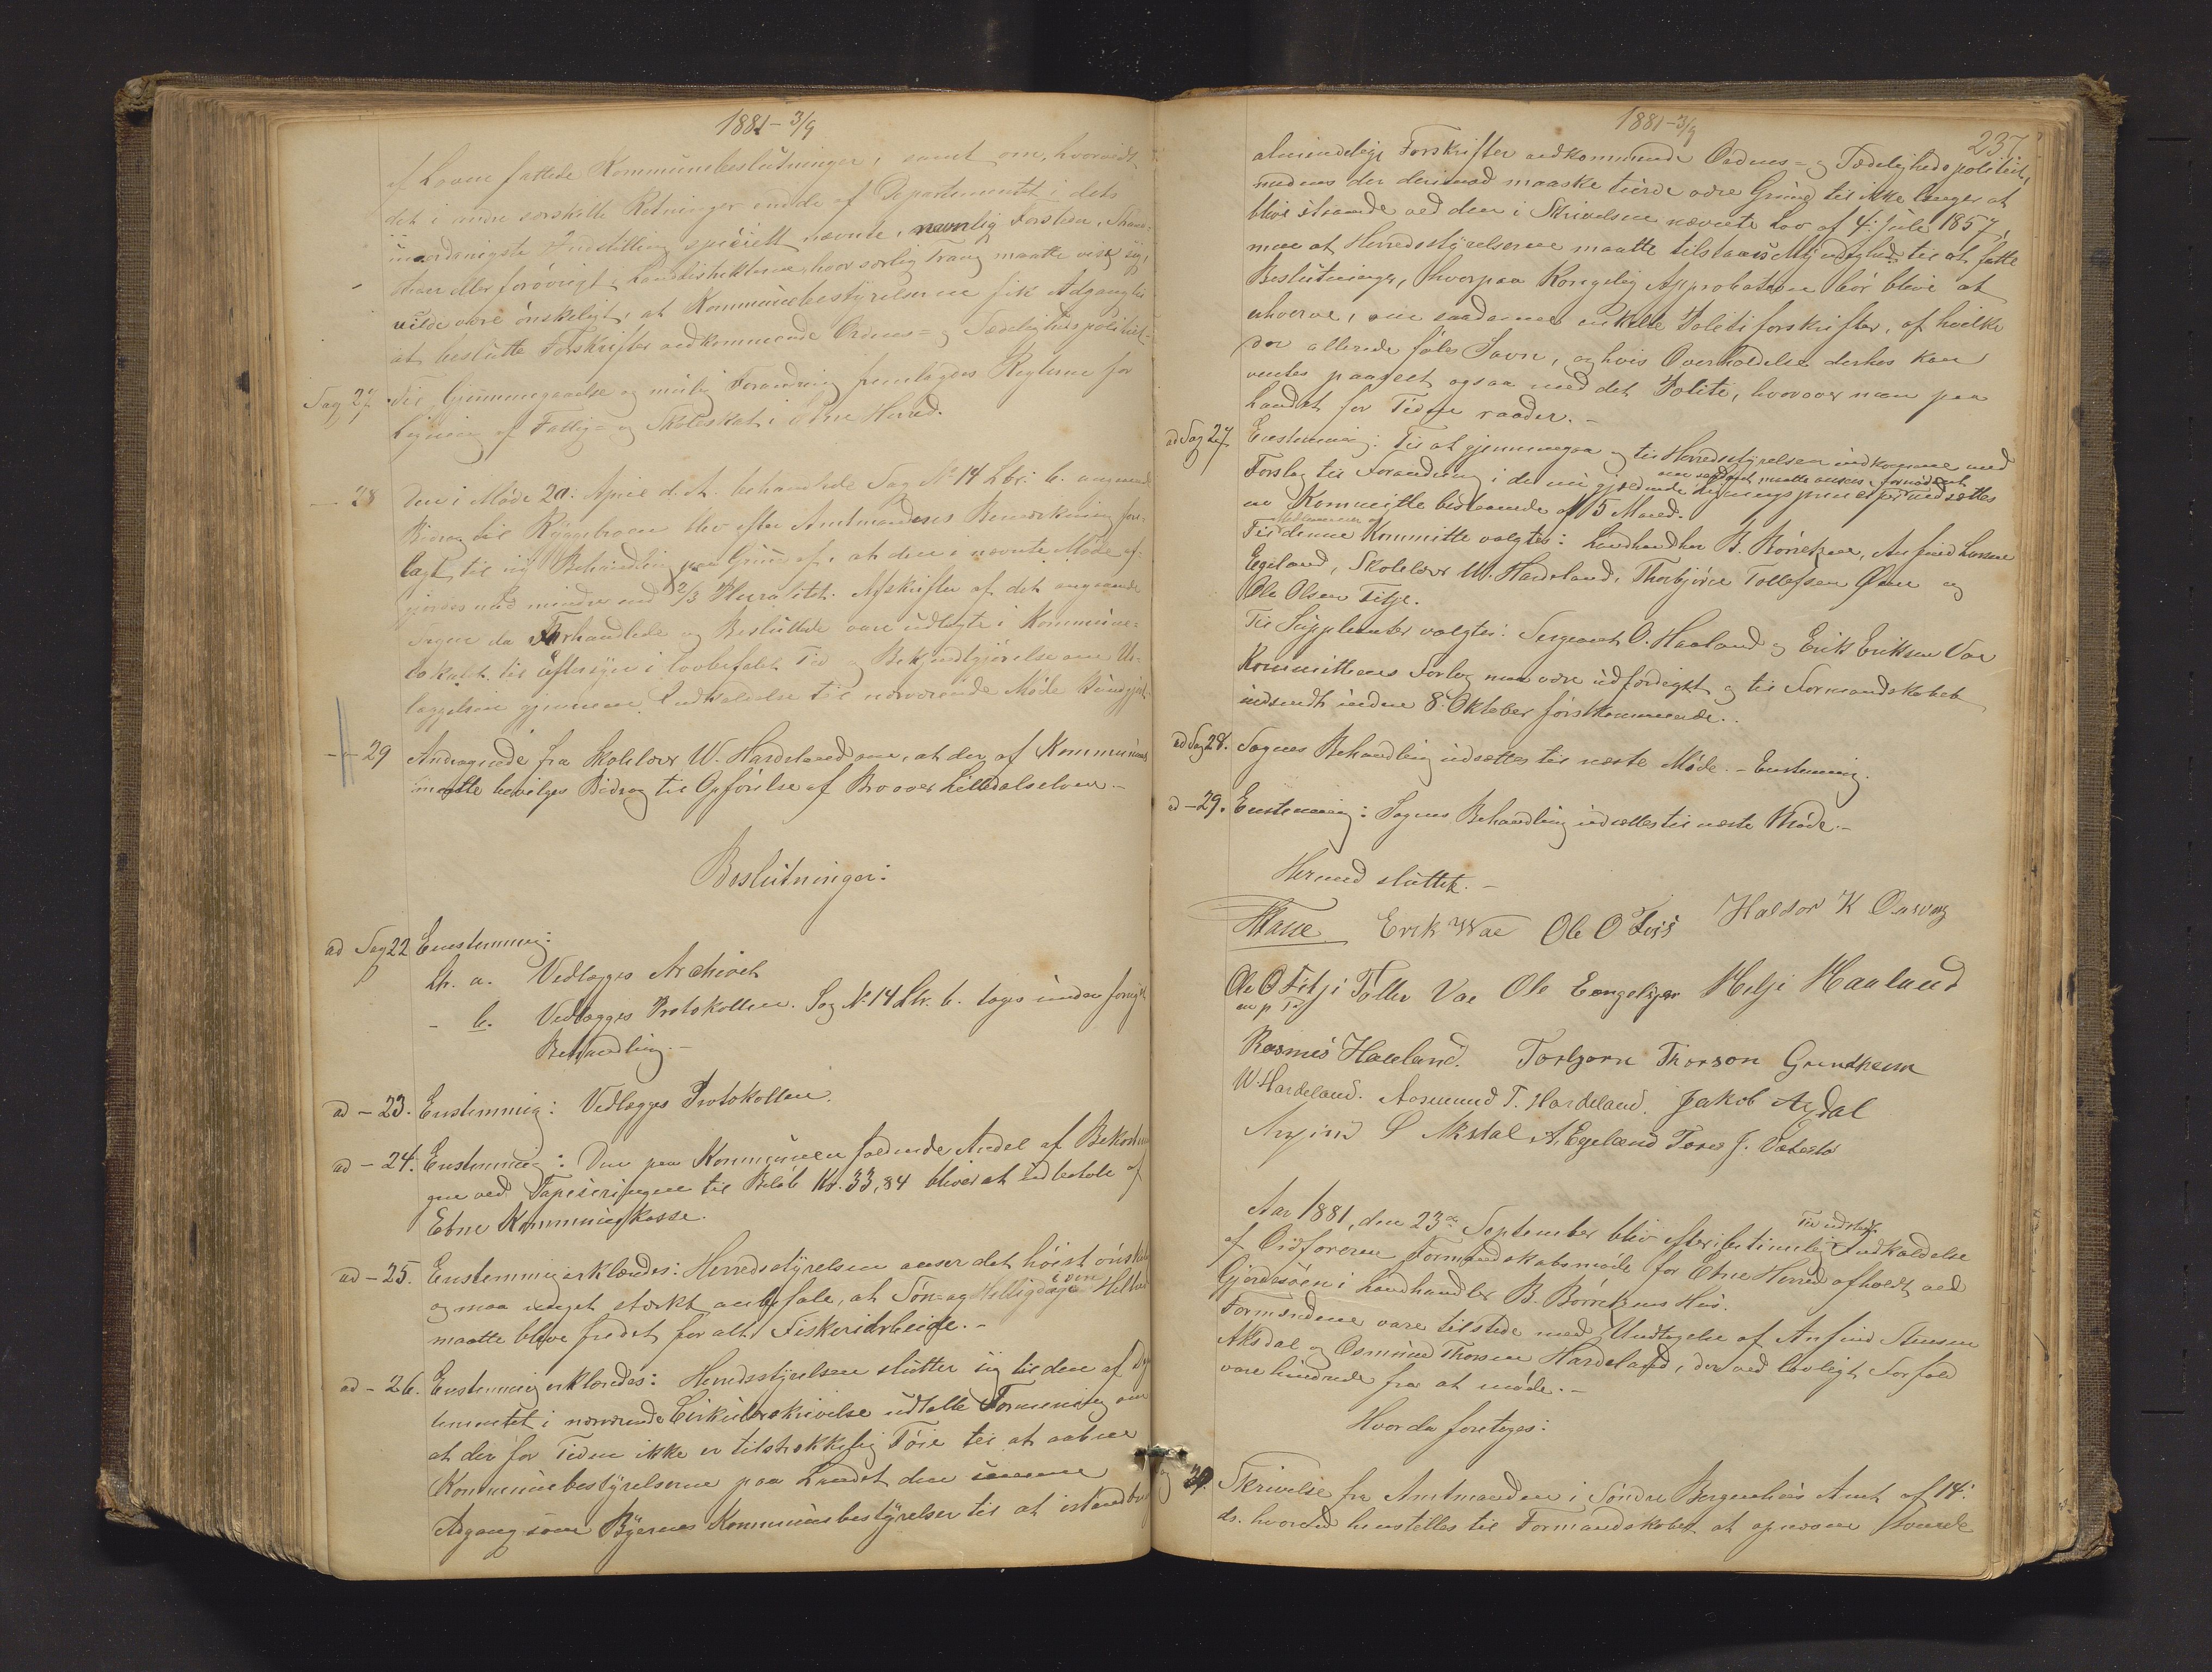 1881 - 3/9
af Loven fattede Kommunebeslutninger, samt om, hvorvidt
det i andre særskilte Retninger end de af Departementet i dets
underdanigste Indstilling specielt nævnte, navnlig Forsteder, Strand-
steder eller forøvrigt i Landdistrikterne, hvor særlig Trang maatte vise sig,
vilde være ønskeligt, at Kommunebestyrelserne fik Adgang til
at beslutte Forskrifter vedkommende Ordens- og Sædelighedspolitiet.-
Sag 27. Til Gjennemgaaelse og mulig Forandring fremlagdes Reglerne for
Ligning af Fattig- og Skoleskat i Etne Herred.
— 28 Den i Møde 20: April d. A. behandlede Sag No 14 Ltr. b. angaaende
Bidrag til Ryggebroen blev efter Amtmandens Bemærkning fore-
lagt til ny Behandling paa Grund af, at den i nævnte Møde af-
gjordes med mindre end 2/3 Pluralitet. Afskrifter af det angaaende
Sagen da Forhandlede og Besluttede vare udlagte i Kommune-
lokalet til Eftersyn i lovbefalet Tid og Bekjendtgjørelse om Ud-
læggelsen gjennem Indkaldelse til nærværende Møde kundgjort.
— 29 Andragende fra Skolelærer W. Hardeland om, at der af Kommunen
maatte bevilges Bidrag til Opførelse af Bro over Litledalselven.-
Beslutninger:
ad Sag 22 Enstemmig:
Ltr. a. Vedlægges Archivet
- b. Vedlægges Protokollen. Sag No 14 Ltr. b. tages under fornyet
Behandling.-
ad - 23. Enstemmig: Vedlægges Protokollen.
ad - 24. Enstemmig: Den paa Kommunen faldende Andel af Bekostnin-
gen ved Tapiseringen til Beløb Kr. 33,84 bliver at udbetale af
Etne Kommunekasse.
ad - 25. Enstemmig erklæredes: Herredsstyrelsen anser det høist ønskeligt
og maa meget stærkt anbefale, at Søn- og Helligdagen
maatte blive fredet for alt Fiskeriarbeide.-
ad - 26. Enstemmig erklæredes: Herredsstyrelsen slutter sig til den af Depar-
tementet i nærværende Cirkulærskrivelse udtalte Formening om
at der for Tiden ikke er tilstrækkelig Føie til at aabne
Kommunebestyrelserne paa Landet den samme
Adgang som Byernes Kommunebestyrelser til at istandbringe
1881 - 3/9
237
almindelige Forskrifter vedkommende Ordens- og Sædelighedspolitiet,
medens der derimod maaske turde være Grund til ikke længer at
blive staaende ved den i Skrivelsen nævnte Lov af 4: Juli 1857,
men at Herredsstyrelserne maatte tilstaaes Myndighed til at fatte
Beslutninger, hvorpaa Kongelig Approbation bør blive at
erhverve, om saadanne enkelte Politiforskrifter, af hvilke
der allerede føles Savn, og hvis Overholdelse derhos kan
ventes paaseet ogsaa med det Politi, hvorover man paa
Landet for Tiden raader.-
ad Sag 27. Enstemmig: Til at gjennemgaa og til Herredsstyrelsen indkomme med
om saadant maatte ansees fornødent
Forslag til Forandring i de nu gjældende Ligningsprinciper nedsættes
en Kommitte bestaaende af 5 Mænd.
Medlemmer af
Til denne Kommitte valgtes: Landhandler B. Børretzen, Anfind Larsen
Egeland, Skolelærer W. Hardeland, Thorbjørn Tollefsen Øen og
Ole Olsen Fitje.
Til Suppleanter valgtes: Sergeant O. Haaland og Erik Eriksen Vae
Kommitteens Forlag maa være udfærdiget og til Formandskabet
indsendt inden 8. Oktober førstkommende.
ad Sag 28. Sagens Behandling udsættes til næste Møde.- Enstemmig.
ad - 29. Enstemmig: Sagens Behandling udsættes til næste Møde.-
Hermed sluttet.-
Erik Wae Ole O Haldor K
Ole O Fitje Tollev Vae Ole Helje Haaland
m p P
Rasmus Haaland. Torbjørn Thorson Grindheim
W. Hardeland. Aasmund T. Hardeland. Jakob
Anfind S Aksdal A. Egeland Tore J.
Aar 1881, den 23de September blev efter betimelig Indkaldelse
Til udskr.
af Ordføreren Formandskabsmøde for Etne Herred afholdt ved
Gjerdesøen i Landhandler B. Børretzens Hus.
Formændene vare tilstede med Undtagelse af Anfind Steensen
Aksdal og Osmund Thorsen Hardeland, der ved lovligt Forfald
vare hindrede fra at møde.-
Hvorda foretoges:
Sag 30. Skrivelse fra Amtmanden i Søndre Bergenhus Amt af 14:
ds. hvorved henstilles til Formandskabet at opnævne